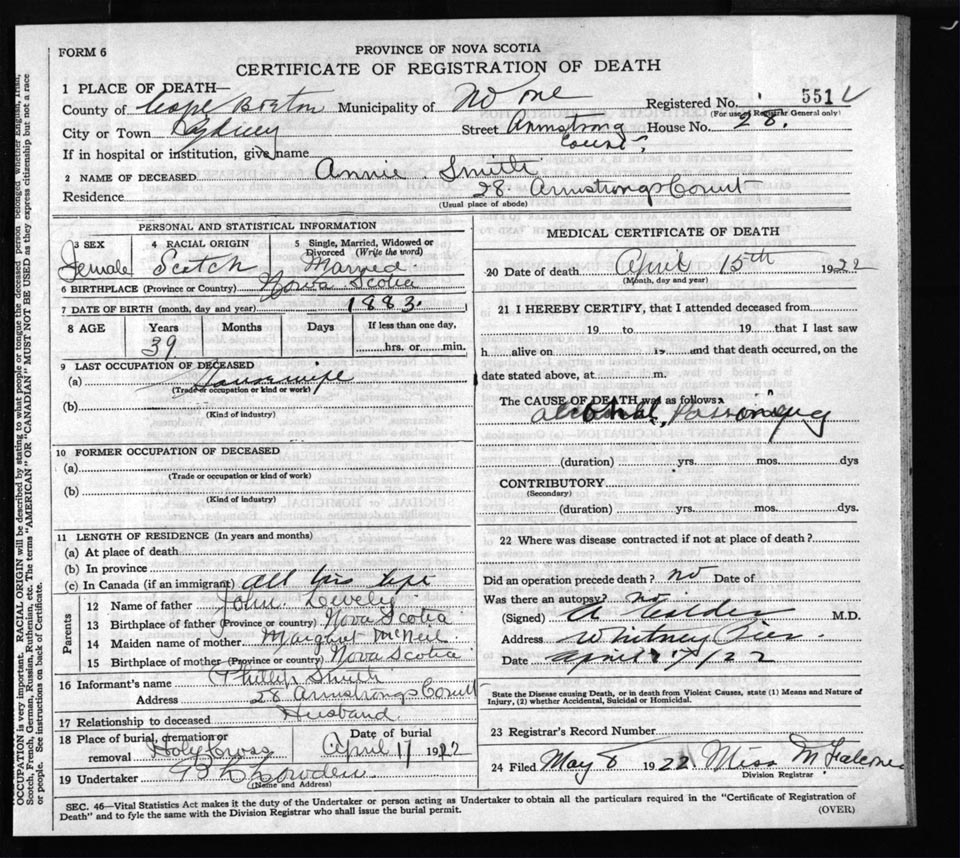 FORM 6
PROVINCE OF NOVA SCOTIA
CERTIFICATE OF REGISTRATION OF DEATH
1 PLACE OF DEATH—
County of Cape Breton Municipality of No one Registered No. 551
(For use of Registrar General only)
City or Town Sydney Street Armstrong Court House No. 28.
If in hospital or institution, give name
2 NAME OF DECEASED Annie Smith
Residence 28 Armstrongs Court
(Usual place of abode)
PERSONAL AND STATISTICAL INFORMATION
3 SEX 4 RACIAL ORIGIN 5 Single, Married, Widowed or Divorced (Write the word)
Female Scotch Married
6 BIRTHPLACE (Province or Country) Nova Scotia
7 DATE OF BIRTH (month, day and year) 1883.
8 AGE Years Months Days If less than one day,
39 hrs. or min.
9 LAST OCCUPATION OF DECEASED
(a) Housewife
(Trade or occupation or kind of work)
(b)
(Kind of industry)
10 FORMER OCCUPATION OF DECEASED
(a)
(Trade or occupation or kind of work)
(b)
(Kind of industry)
11 LENGTH OF RESIDENCE (In years and months)
(a) At place of death
(b) In province
(c) In Canada (if an immigrant) all his life
Parents
12 Name of father John Lively
13 Birthplace of father (Province or country) Nova Scotia
14 Maiden name of mother Margaret McNeil
15 Birthplace of mother (Province or country) Nova Scotia
16 Informant's name Phillip Smith
Address 28 Armstrongs Court
17 Relationship to deceased Husband
18 Place of burial, cremation or removal Holy Cross Date of burial April 17 1922
19 Undertaker
(Name and Address)
MEDICAL CERTIFICATE OF DEATH
20 Date of death April 15th 1922
(Month, day and year)
21 I HEREBY CERTIFY, that I attended deceased from
19 to 19 that I last saw
h alive on 19 and that death occurred, on the
date stated above, at m.
The CAUSE OF DEATH was as follows
alcohol Poisoning
(duration) yrs. mos. dys
CONTRIBUTORY
(Secondary)
(duration) yrs. mos. dys.
22 Where was disease contracted if not at place of death?
Did an operation precede death? no Date of
Was there an autopsy? no
(Signed) A Calder M.D.
Address Whitney Pier.
Date April 17/22
State the Disease causing Death, or in death from Violent Causes, state (1) Means and Nature of
Injury, (2) whether Accidental, Suicidal or Homicidal.
23 Registrar's Record Number
24 Filed May 8 1922 Miss M
Division Registrar
SEC. 46—Vital Statistics Act makes it the duty of the Undertaker or person acting as Undertaker to obtain all the particulars required in the "Certificate of Registration of
Death" and to fyle the same with the Division Registrar who shall issue the burial permit.
(OVER)
OCCUPATION is very important. RACIAL ORIGIN will be described by stating to what people or tongue the deceased person belonged whether English, Irish,
Scotch, French, German, Russian, Ruthenian, etc. The terms "AMERICAN" OR "CANADIAN" MUST NOT BE USED as they express citizenship but not a race
or people. See instructions on back of Certificate.